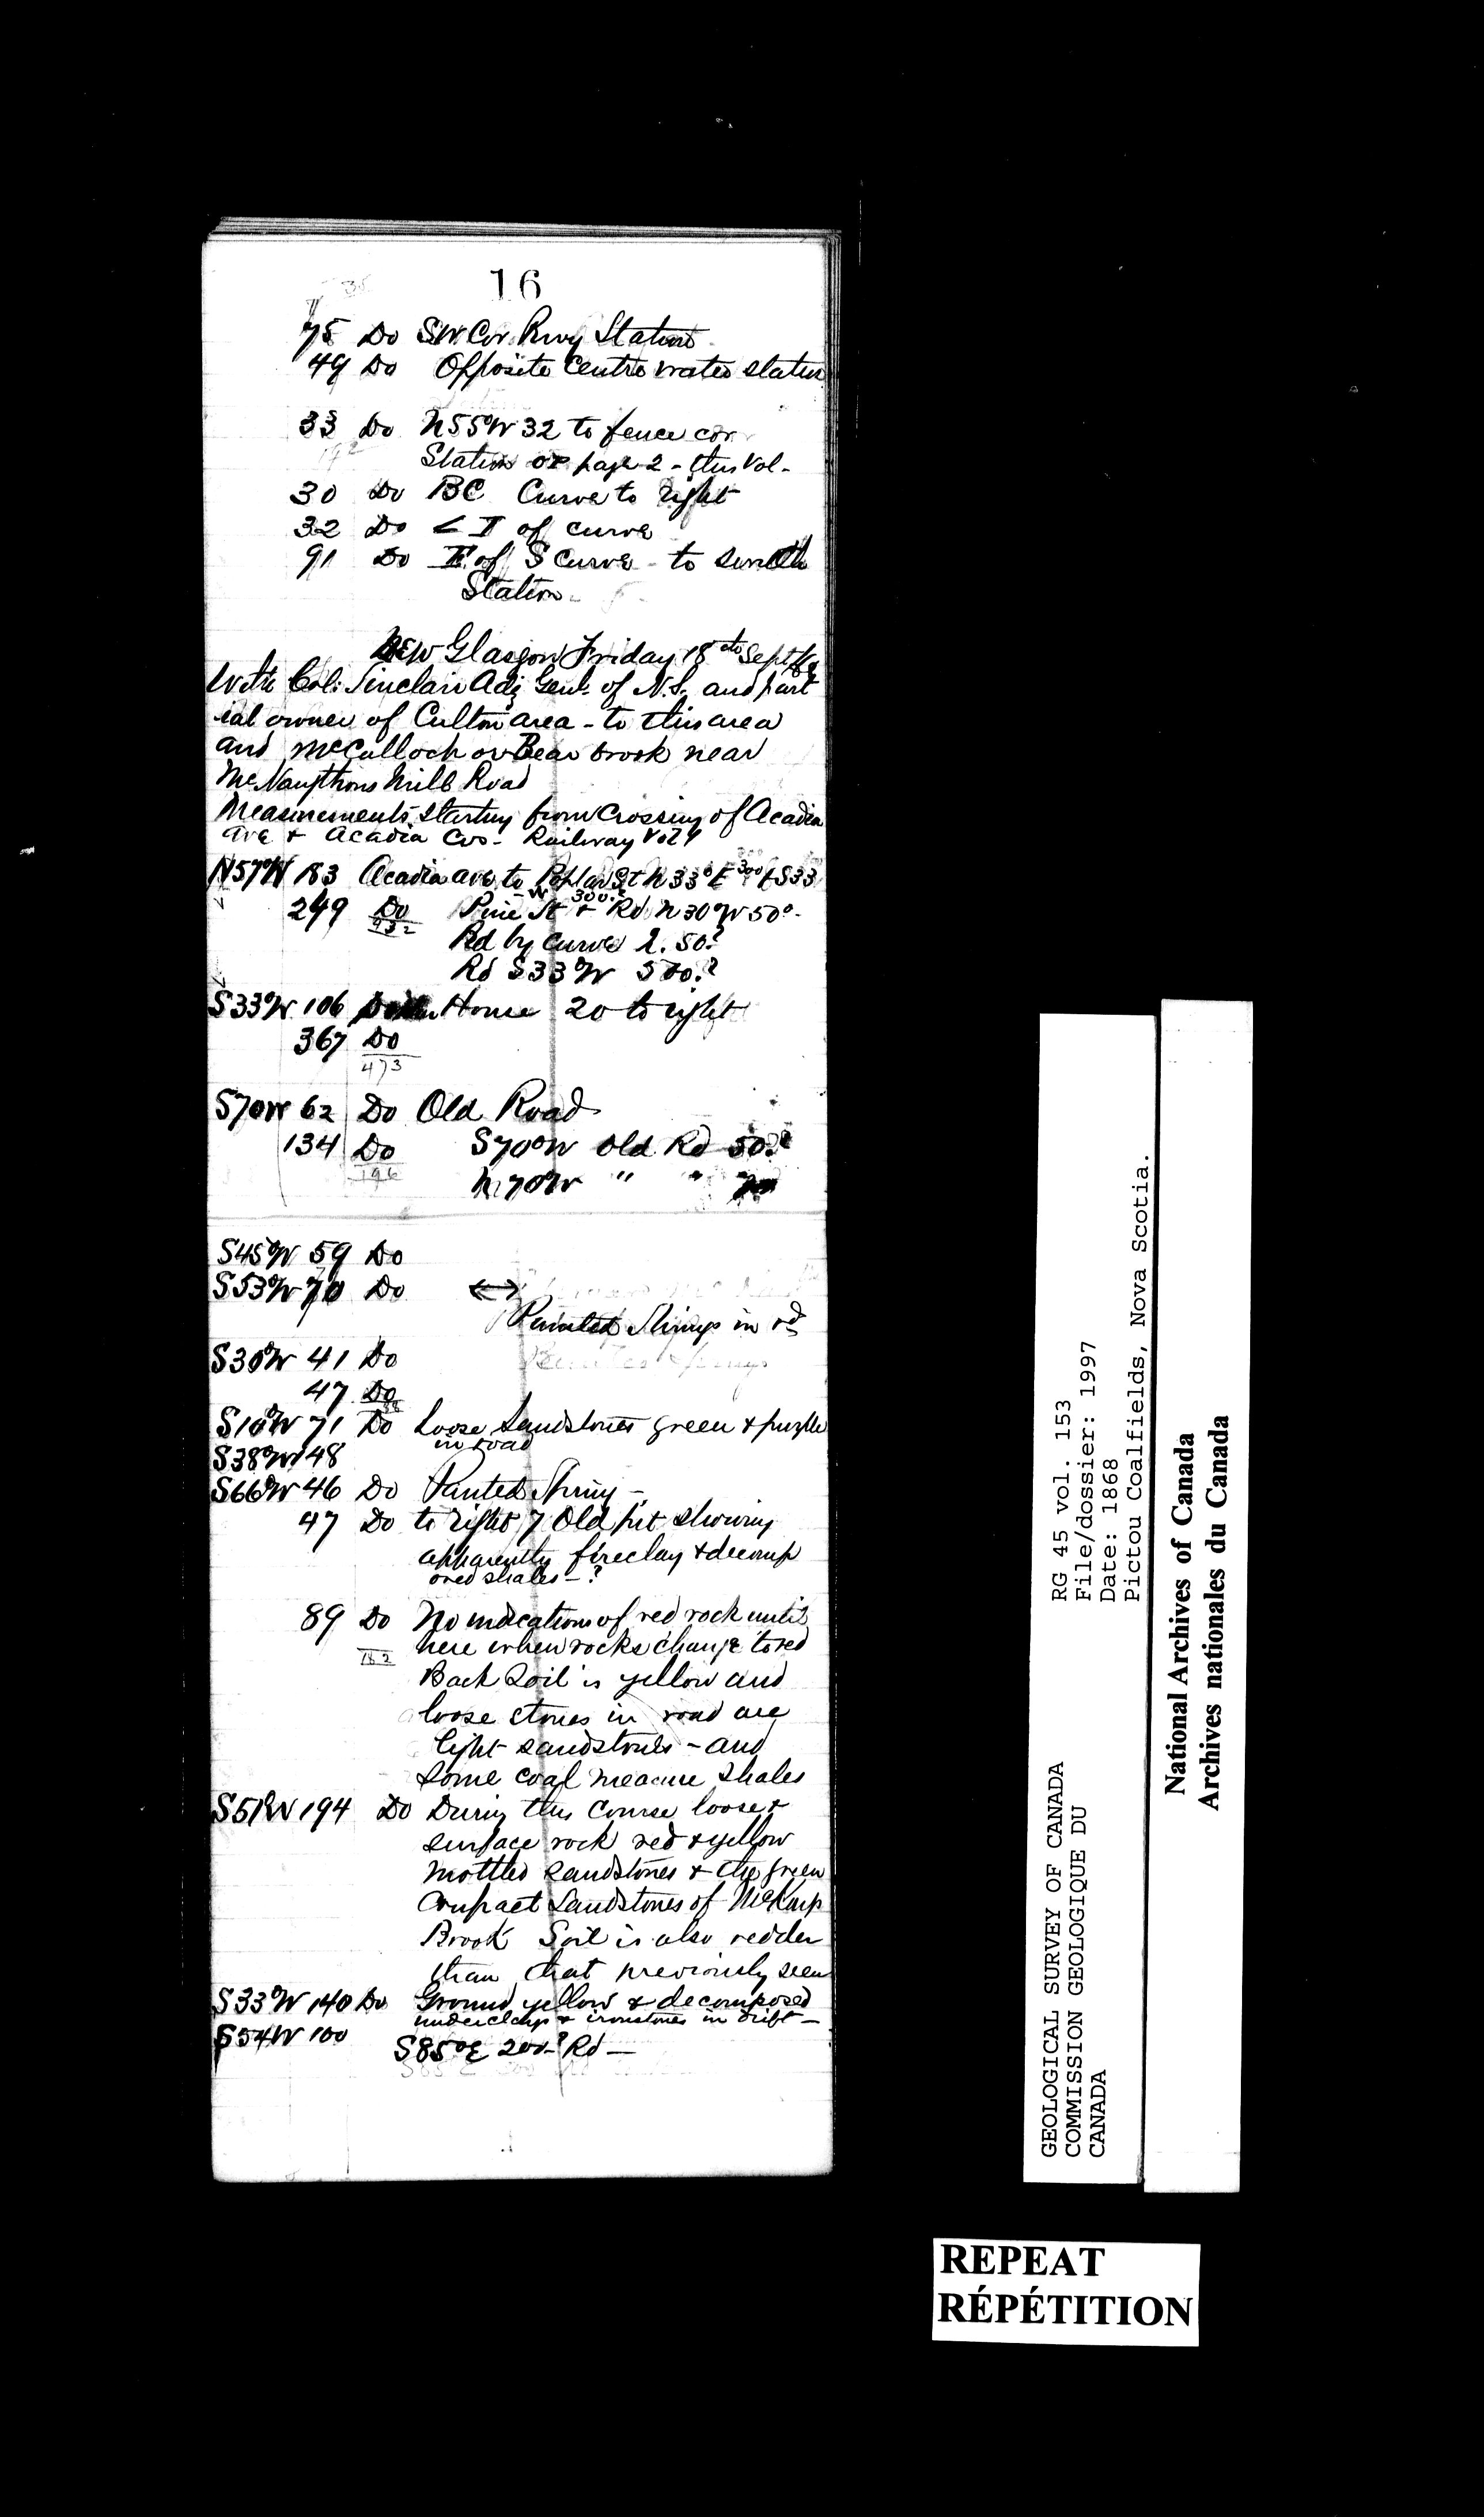 16
75 Do SW. Cor. Rwy Station
49 Do Opposite Centre water station
33 Do N55°W 32 to fence cor
Station on page 2 - this Vol -
30 Do BC Curve to right
32 Do < I of curve
91 Do E of S Curve - to
Station -
New Glasgow Friday 18th Sept
With Col: Sinclair Adj Genl. of N.S. and part
ial owner of Culton area - to this area
and McCulloch or Bear brook near
McNaughtons Mill Road
Measurements starting from Crossing of Acadia
ave & Acadia Cos - Railway Vol
N57°W 183 Acadia ave to Poplar St N33°E 300 & S33
-W 300.?
249 Do Pine St & Rd N30°W 50°-
432
Rd by curve 2. 50?
Rd S33°W 500.?
S33°W 106 House 20 to right
367 Do
473
S70W 62 Do Old Road
134 Do S70°W Old Rd 50?
196
N70°W " "
S45°W 59 Do
S53°W 70 Do <->
Springs in rd
S30°W 41 Do
47 Do
88
S10°W 71 Do Loose Sandstones green & purple
in road
S38°W 48
S66°W 46 Do Spring -
47 Do to right 7 Old pit showing
apparently fireclay & decomp
osed shales - ?
89 Do No indications of red rock until
here when rocks change to red
182
Back Soil is yellow and
loose stones in road are
light sandstones - and
some coal measure shales
S51W 194 Do During this Course loose &
surface rock red & yellow
mottled sandstones & the green
Compact Sandstones of
Brook Soil is also redder
than that previously seen
S33°W 140 Do Ground yellow & decomposed
underclays & ironstones in drift -
S54W 100
S85°E 200-? Rd -
GEOLOGICAL SURVEY OF CANADA
COMMISSION GEOLOGIQUE DU
CANADA
RG 45 vol. 153
File/dossier: 1997
Date: 1868
Pictou Coalfields, Nova Scotia.
National Archives of Canada
Archives nationales du Canada
REPEAT
RÉPÉTITION